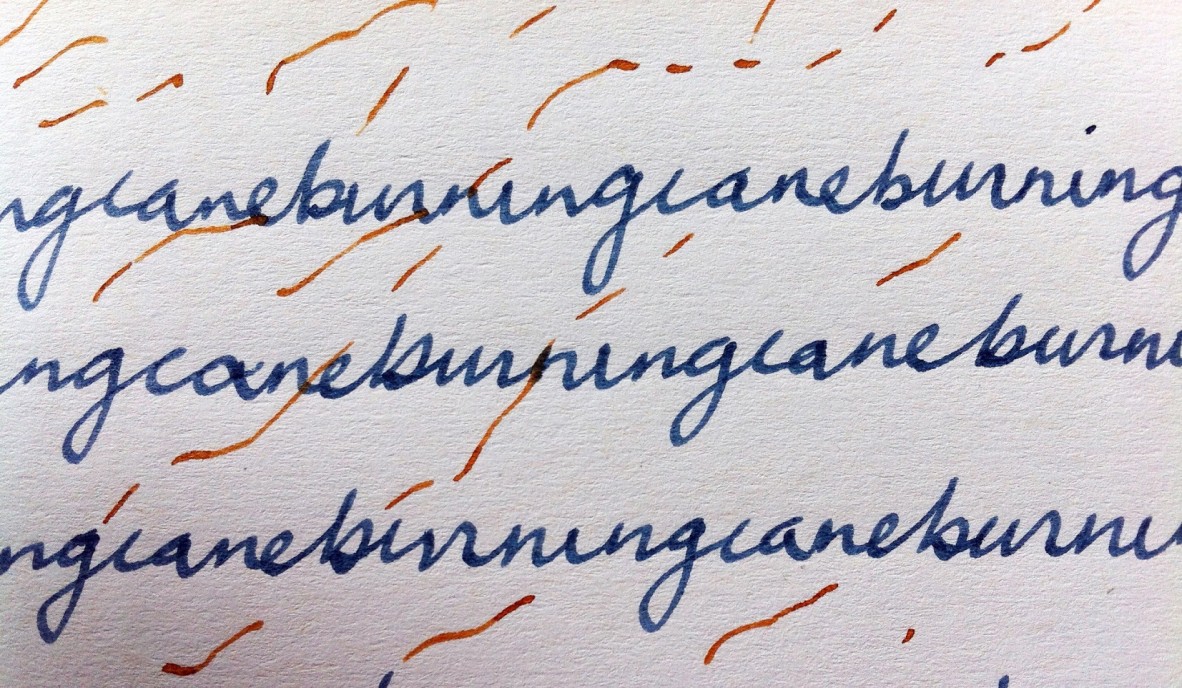 ngcaneburningcaneburning
ngcaneburningcaneburni
ngcaneburningcaneburni